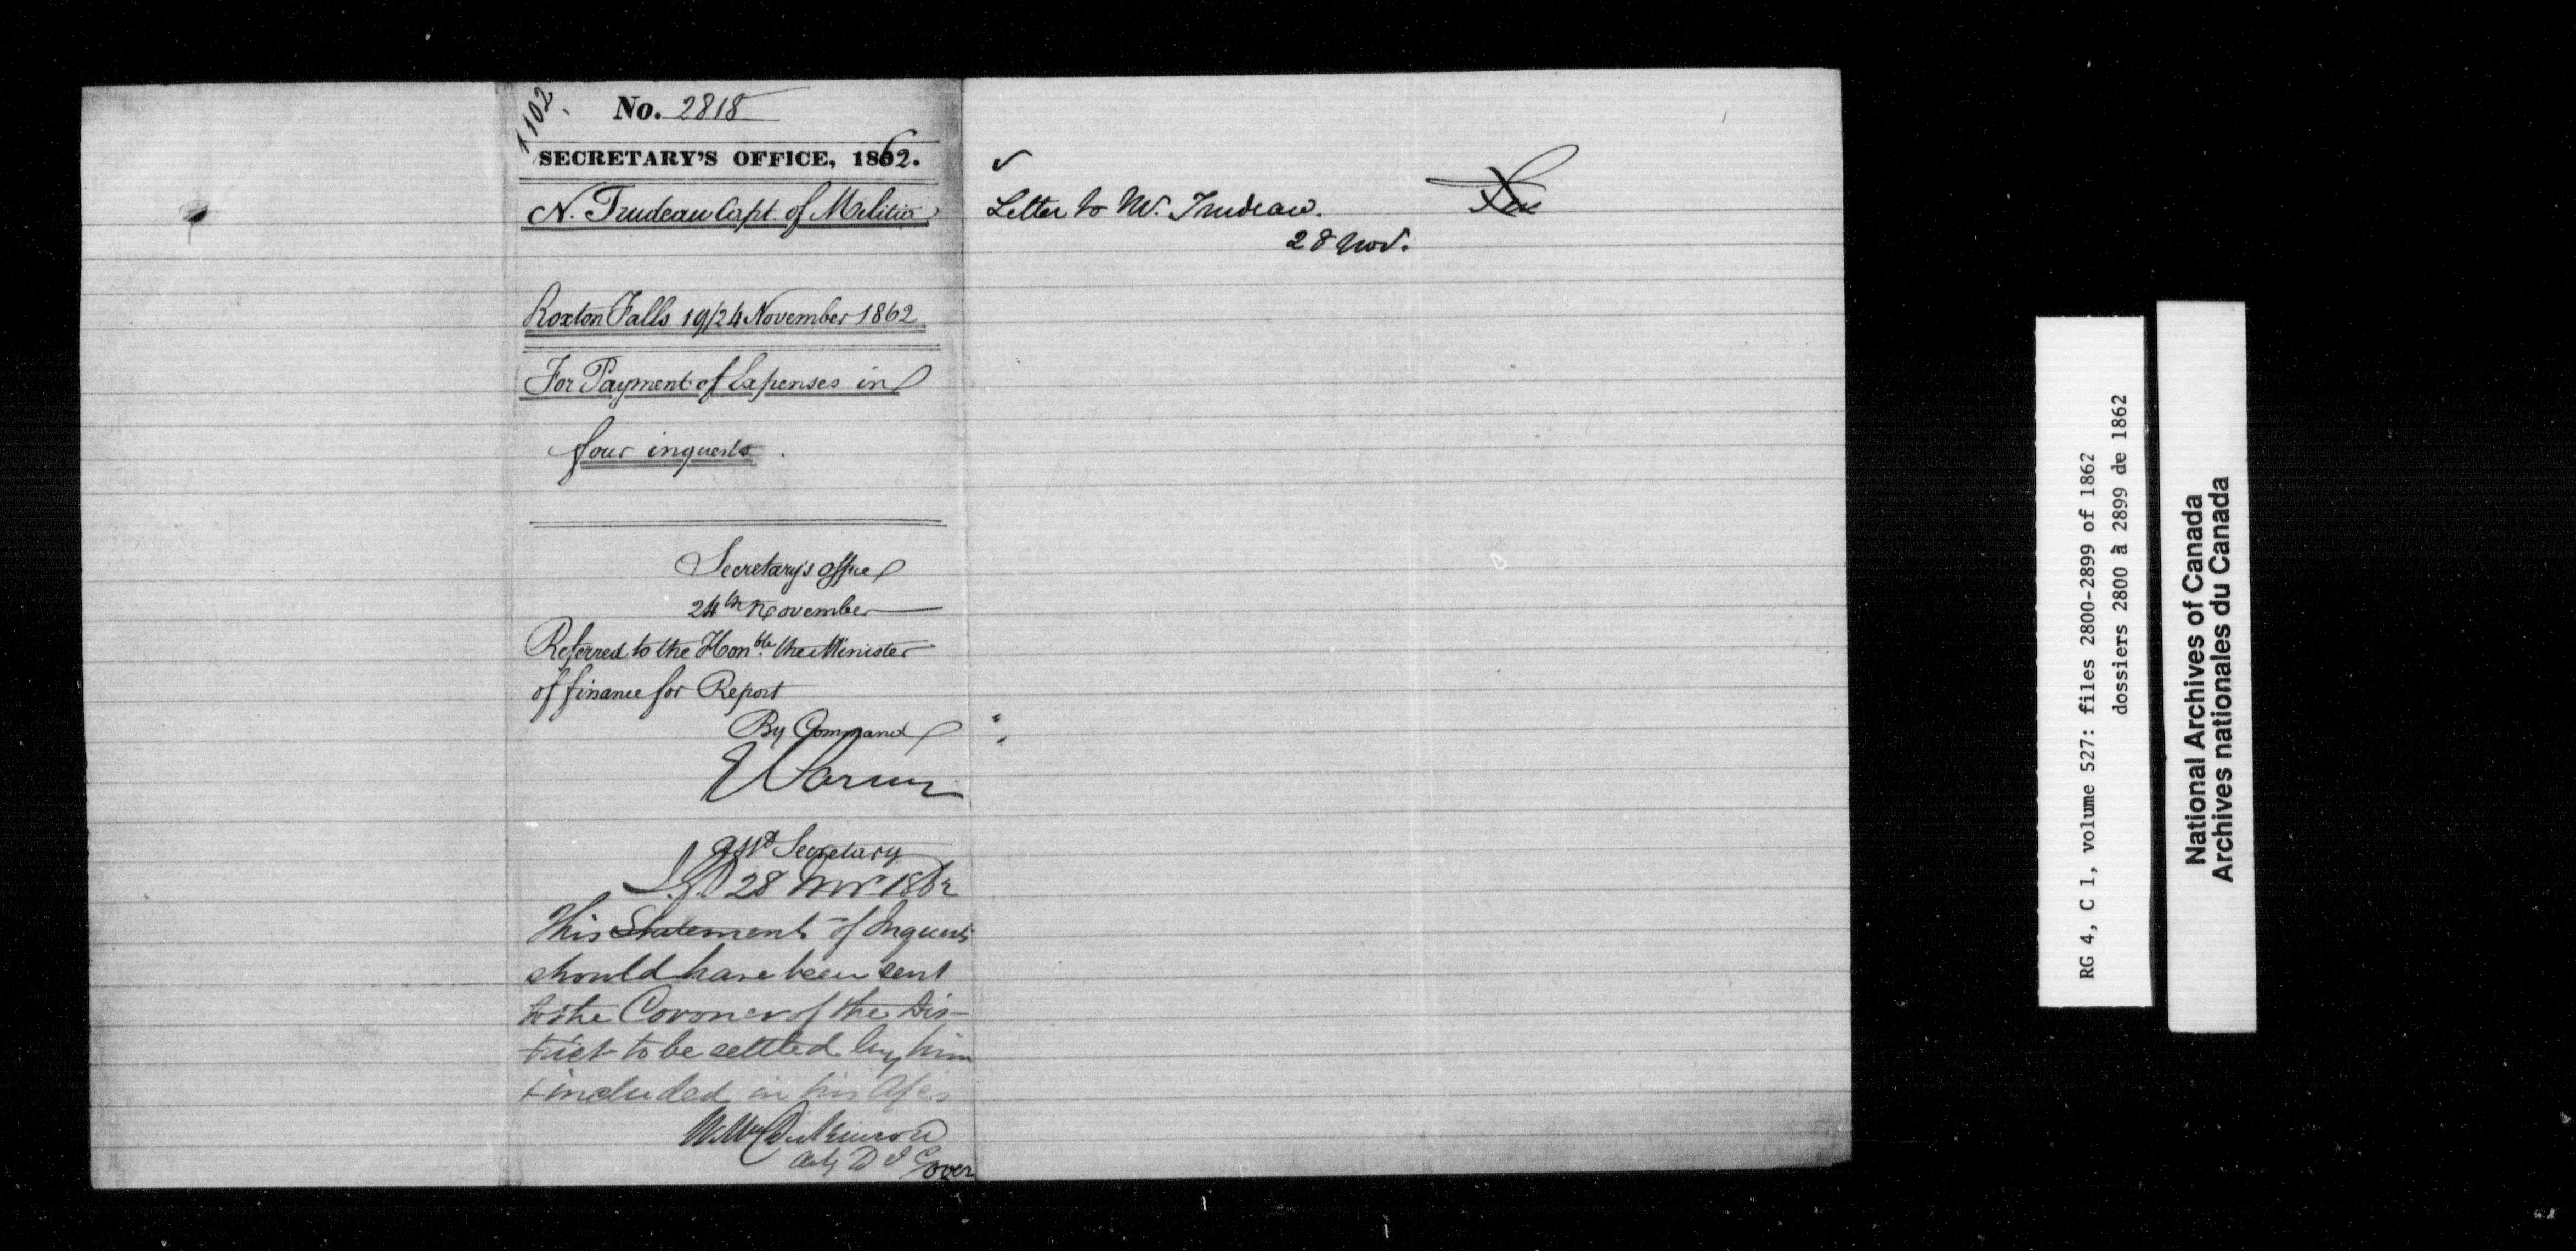 1102.
No. 2818
SECRETARY'S OFFICE, 1862.
N. Trudeau Capt. of Militia
Roxton Falls 19/24 November 1862
For Payment of Expenses in
four inquests.
Secretary's office
24th November
Referred to the Honble. the Minister
of finance for Report
By Command
Asst Secretary
28 Nov 1862
This Statement of Inquests
should have been sent
to the Coroner of the Dis-
trict to be settled by him
+ included in his
Dickinson
over
Letter to Mr. Trudeau.
28 Nov.
RG 4, C 1, volume 527: files 2800-2899 of 1862
dossiers 2800 à 2899 de 1862
National Archives of Canada
Archives nationales du Canada